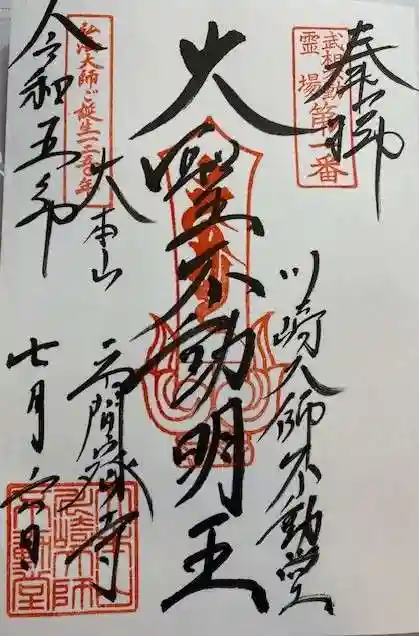 奉拝
武相不動尊
霊場 第一番
川崎大師不動堂
大聖不動明王
大本山
平間寺
弘法大師ご誕生一二五〇年
令和五年
七月六日